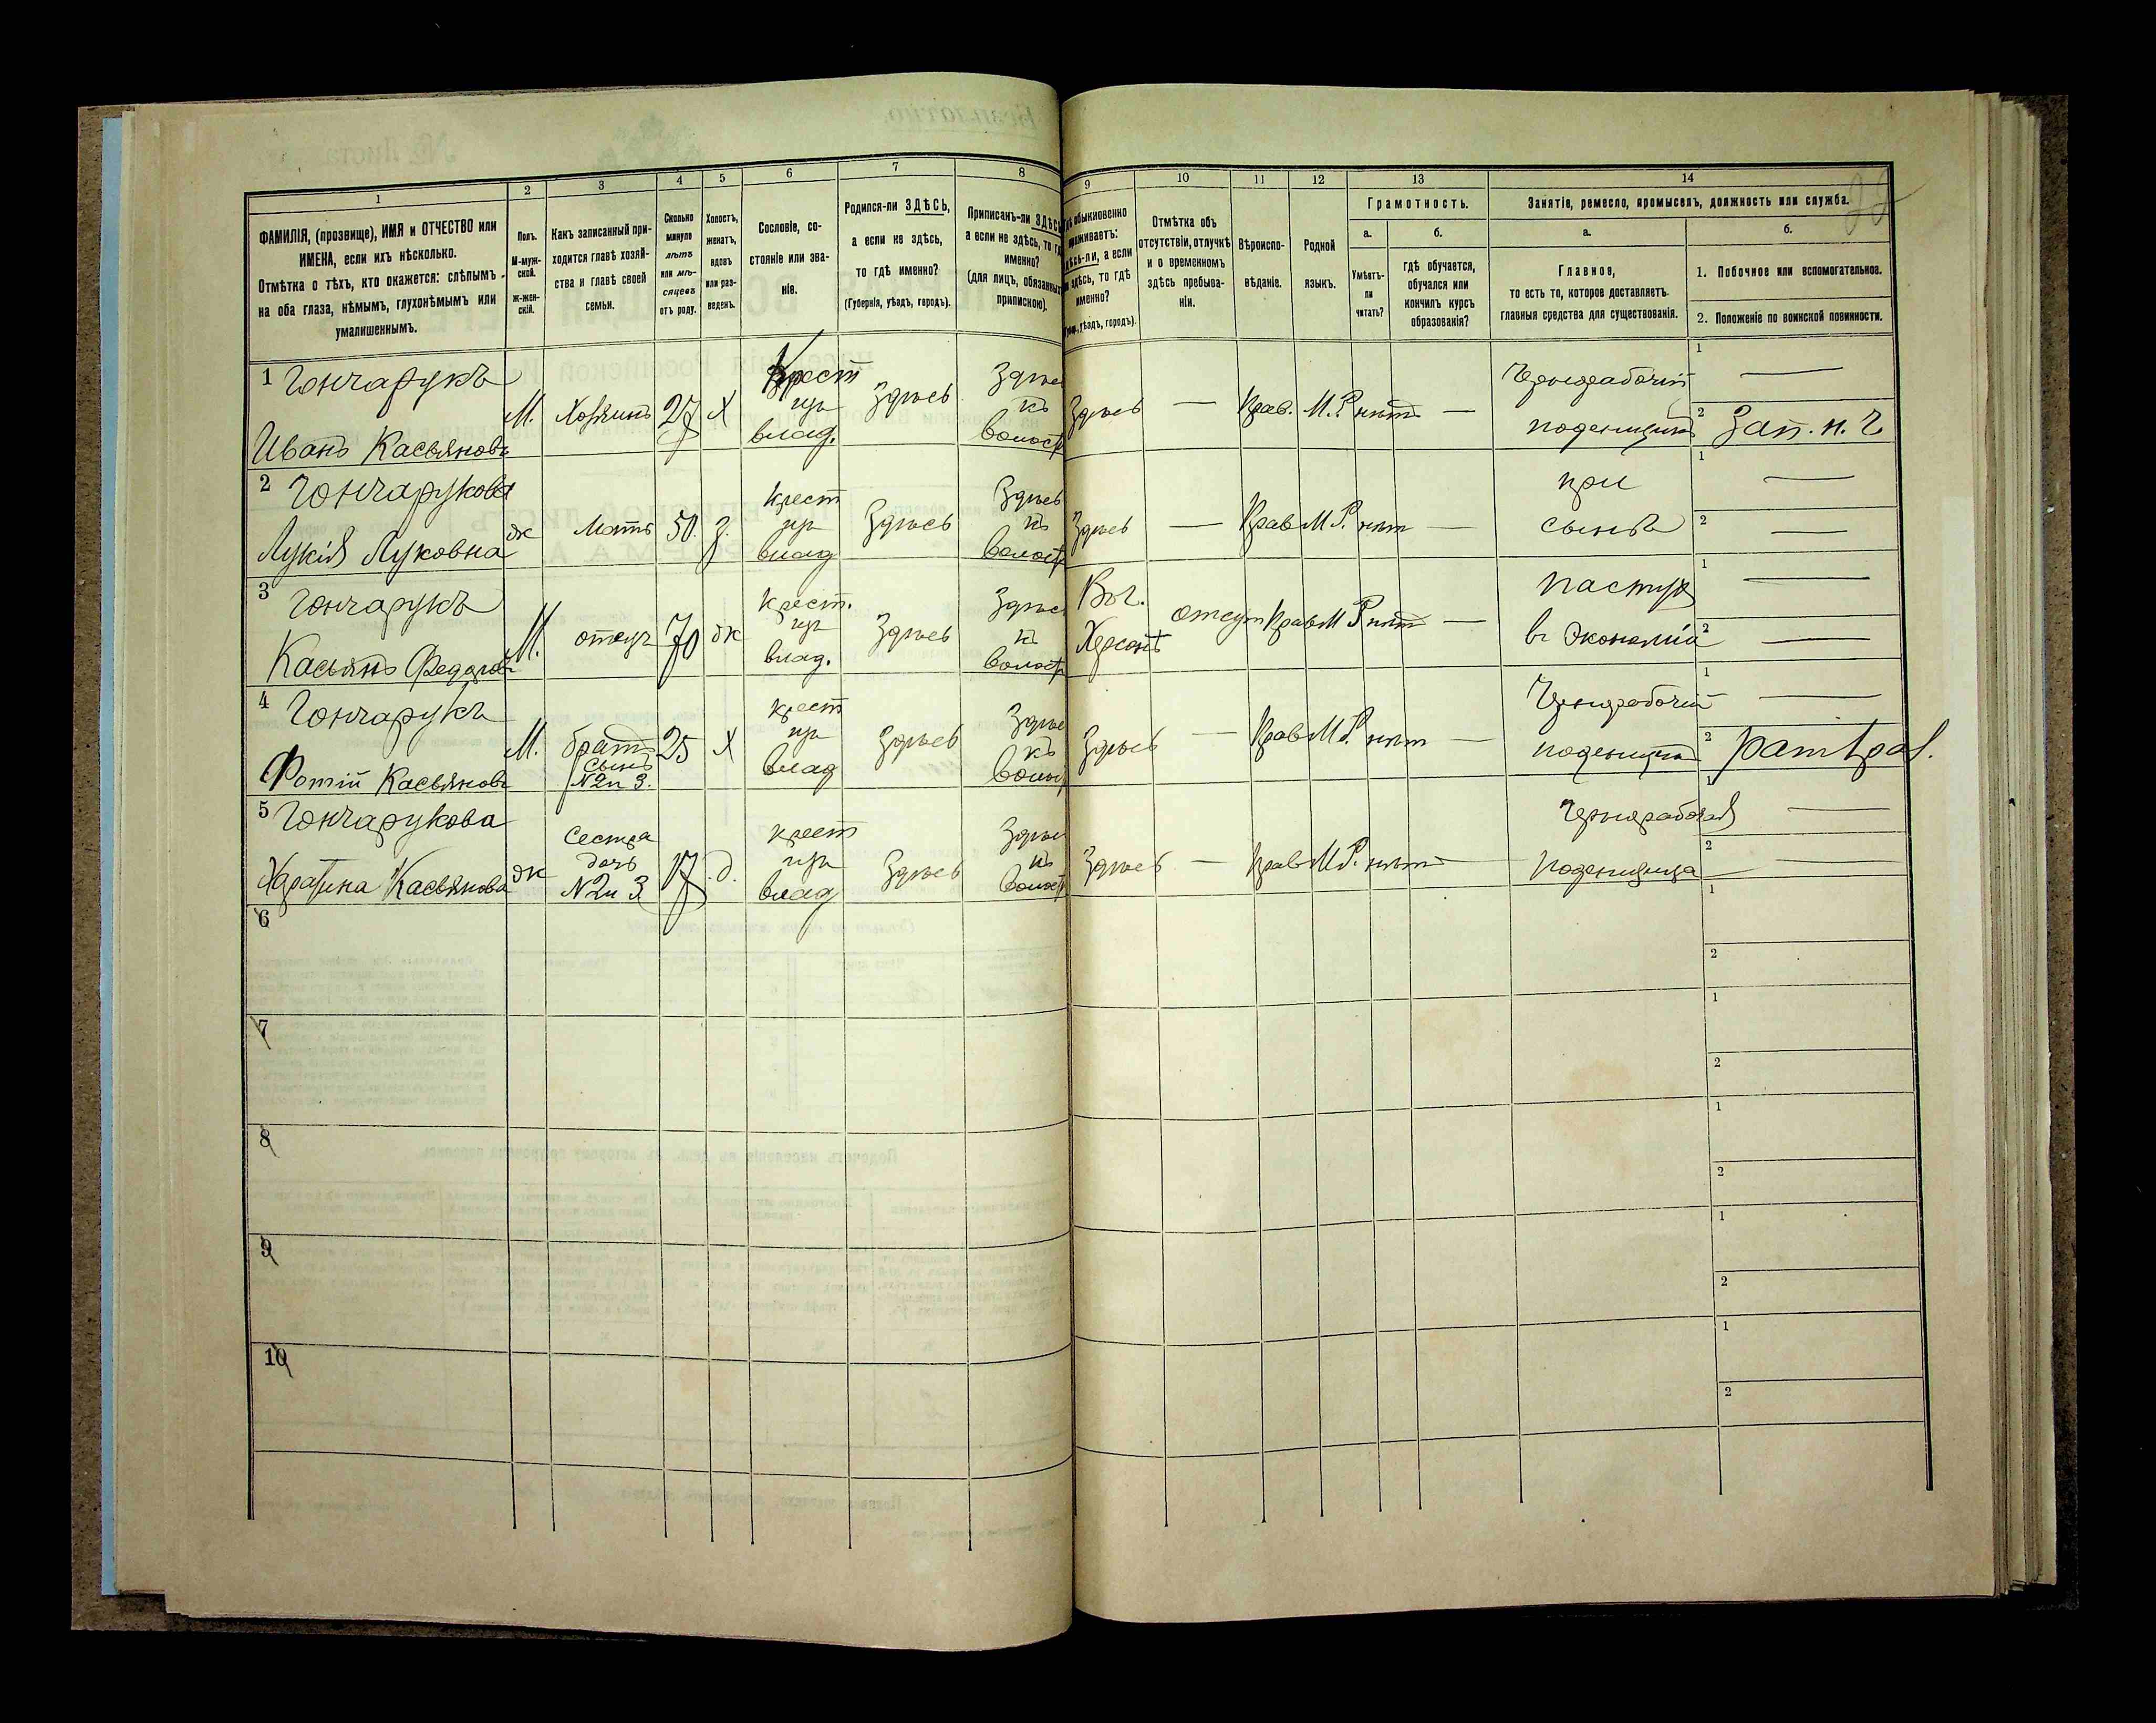 1
2
3
4
5
6
7
8
9
10
11
12
13
14
ФАМИЛІЯ, (прозвище), ИМЯ и ОТЧЕСТВО или
ИМЕНА, если ихъ нѣсколько.
Отмѣтка о тѣхъ, кто окажется: слѣпымъ
на оба глаза, нѣмымъ, глухонѣмымъ или
умалишеннымъ.
Полъ.
М-муж-
ской.
Ж-жен-
скій.
Какъ записанный при-
ходится главѣ хозяй-
ства и главѣ своей
семьи.
Сколько
минуло
лѣтъ
или мѣ-
сяцевъ
отъ роду.
Холостъ,
женатъ,
вдовъ
или раз-
веденъ.
Сословіе, со-
стояніе или зва-
ніе.
Родился-ли ЗДѢСЬ,
а если не здѣсь,
то гдѣ именно?
(Губернія, уѣздъ, городъ).
Приписанъ-ли ЗДѢСЬ
а если не здѣсь, то гдѣ
именно?
(для лицъ, обязанныхъ
припискою).
обыкновенно
проживаетъ:
здѣсь-ли, а если
не здѣсь, то гдѣ
именно?
уѣздъ, городъ).
Отмѣтка объ
отсутствіи, отлучкѣ
и о временномъ
здѣсь пребыва-
ніи.
Вѣроиспо-
вѣданіе.
Родной
языкъ.
Грамотность.
а.
Умѣетъ-
ли
читать?
б.
гдѣ обучается,
обучался или
кончилъ курсъ
образованія?
Занятіе, ремесло, промыселъ, должность или служба.
а.
Главное,
то есть то, которое доставляетъ
главныя средства для существованія.
б.
1. Побочное или вспомогательное.
2. Положеніе по воинской повинности.
1 Гончарукъ
Иванъ Касьяновъ
М. Хозяинъ 27 Х
Крест
изъ
влад.
Здѣсь
Здѣсь
къ
волост
Здѣсь — Прав. М.Р. нѣтъ —
Чернорабочій
поденщикъ
1 —
2 Зап. н. ч.
2 Гончарукова
Лукія Луковна
ж Мать 50. З.
крест
изъ
влад
Здѣсь
Здѣсь
къ
волост
Здѣсь — Прав М.Р. нѣт —
при
сынѣ
1 —
2 —
3 Гончарукъ
Касьянъ Федоровъ
М. отецъ 70 ж
крест.
изъ
влад.
Здѣсь
Здѣсь
къ
волост
Херсонѣ
отсут Прав М Р нѣт —
пастух
въ Экономіи
1 —
2 —
4 Гончарукъ
Фотій Касьяновъ
М. братъ
сынъ
№2и 3.
25 Х
крест
изъ
влад
Здѣсь
Здѣсь
къ
волост
Здѣсь — Прав М.Р. нѣт —
Чернорабочій
поденщикъ
1 —
2
5 Гончарукова
Касьянова
ж
Сестра
дочь
№2и 3
17 д.
крест
изъ
влад
Здѣсь
Здѣсь
къ
волост
Здѣсь — Прав М.Р. нѣт —
Чернорабочая
поденщица
1 —
2 —
6
1
2
7
1
2
8
1
2
9
1
2
10
1
2